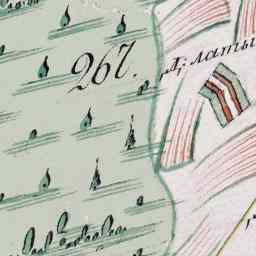 267.
Д: латы